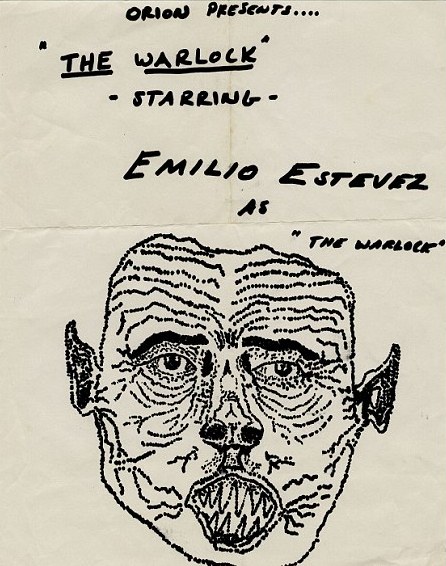 ORION PRESENTS....
"THE WARLOCK"
- STARRING -
EMILIO ESTEVEZ
AS
"THE WARLOCK"